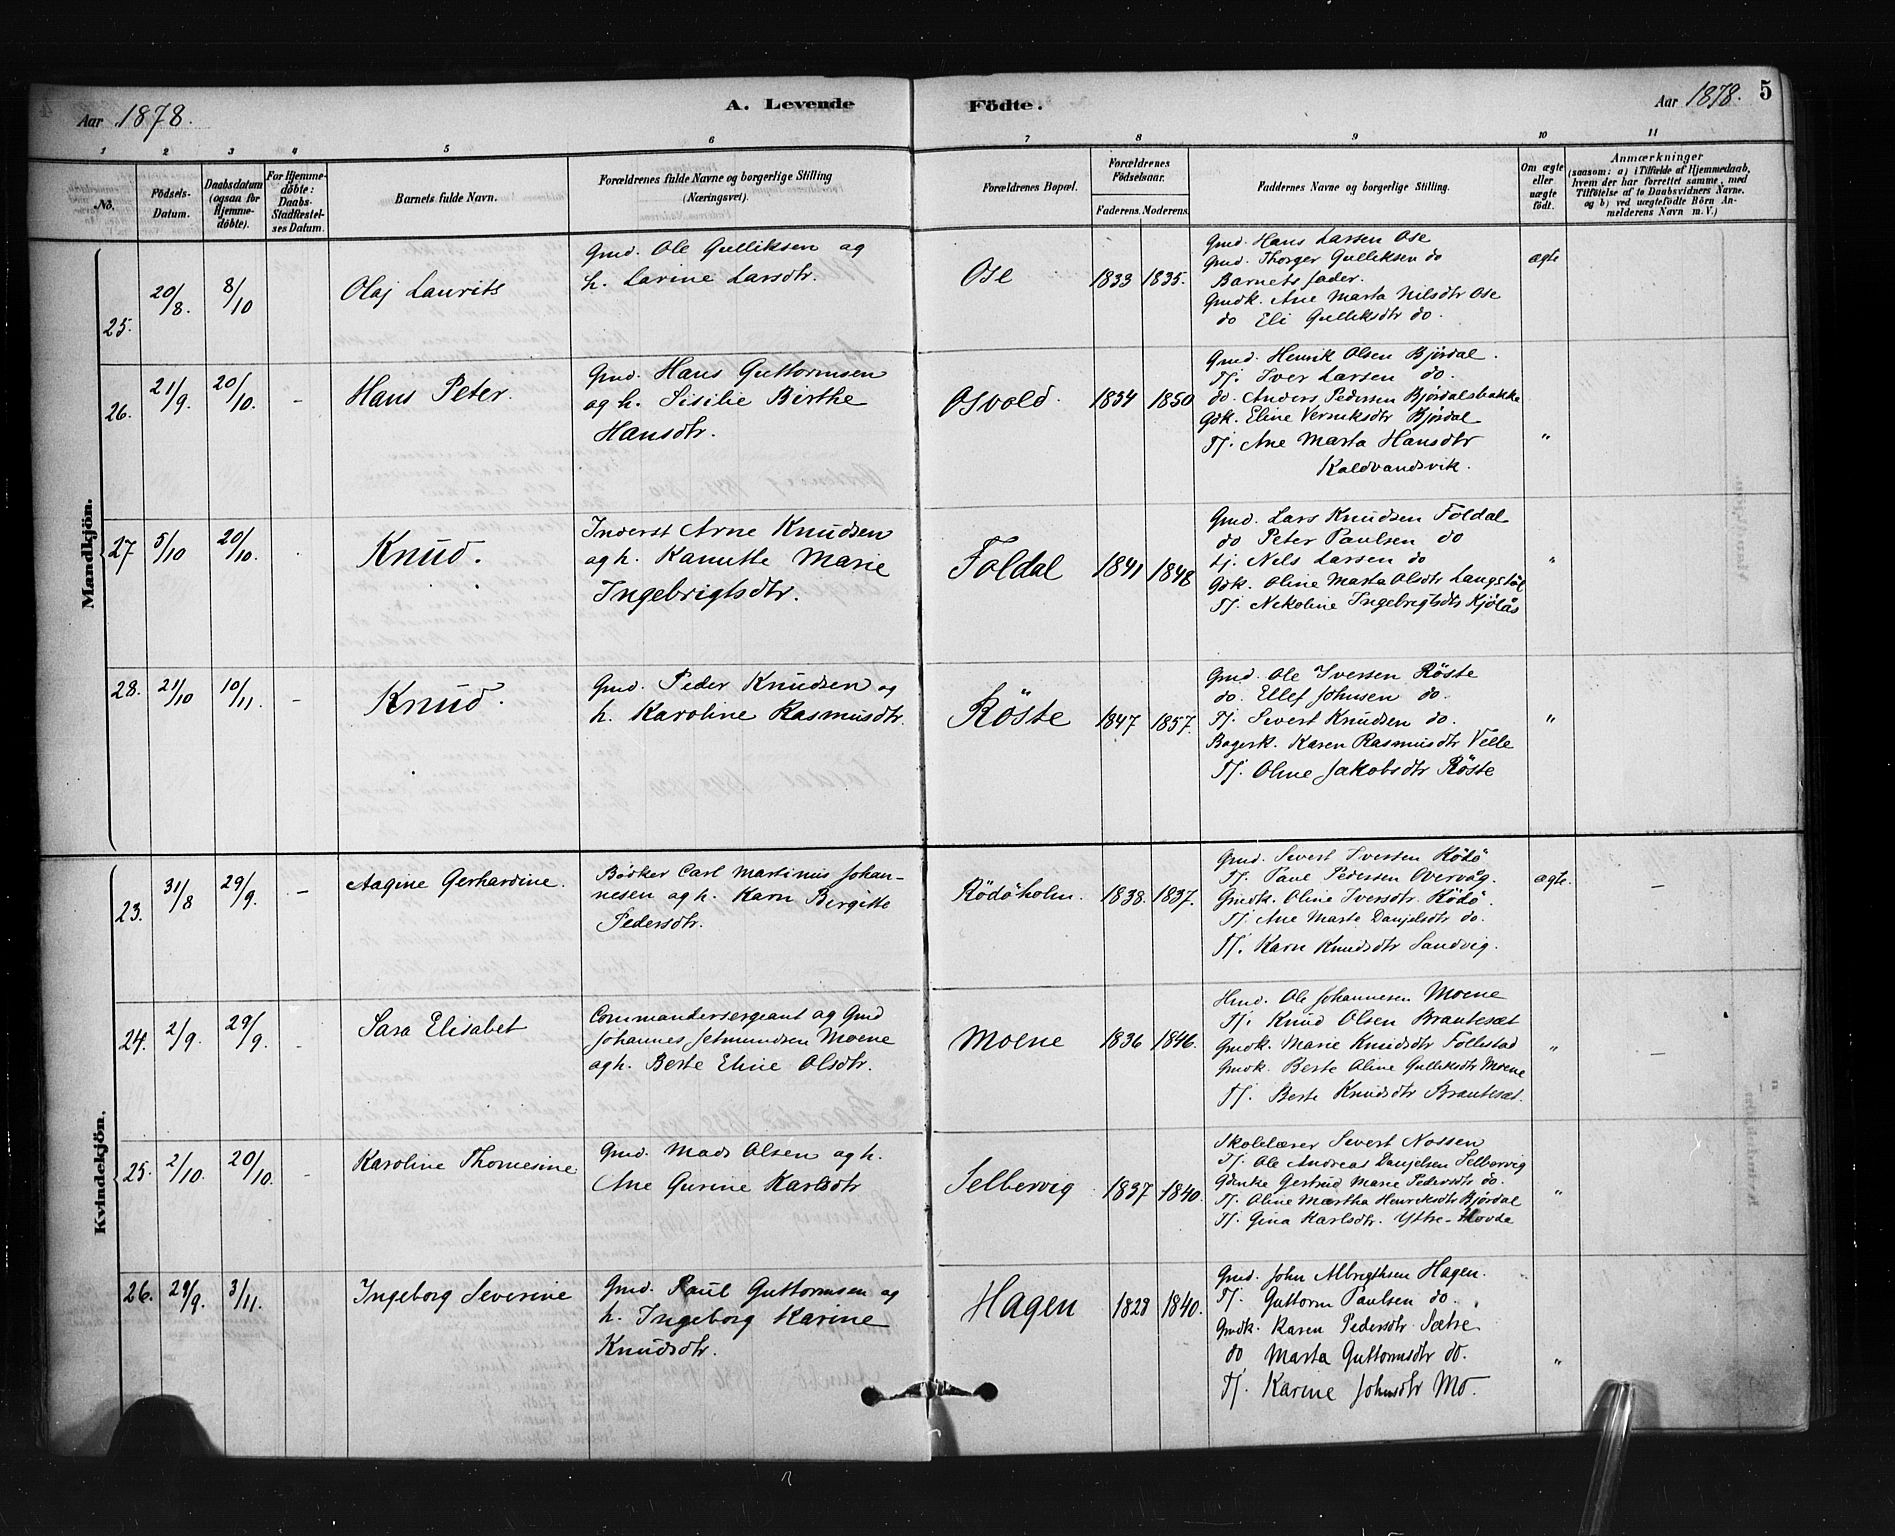 Aar 1878.
A. Levende
Födte.
Aar 1878.
5
1
2
3
4
5
6
7
8
9
10
11
No.
Födsels-
Datum.
Daabsdatum
(ogsaa for
Hjemme-
döbte).
For Hjemme-
döbte:
Daabs-
Stadfæstel-
ses Datum.
Barnets fulde Navn.
Forældrenes fulde Navne og borgerlige Stilling
(Næringsvei).
Forældrenes Bopæl.
Forældrenes
Födselsaar.
Faderens.
Moderens.
Faddernes Navne og borgerlige Stilling.
Om ægte
eller
uægte
födt.
Anmærkninger
(saasom: a) i Tilfælde af Hjemmedaab,
hvem der har forrettet samme, med
Tilföielse af to Daabsvidners Navne,
og b) ved uægtefödte Börn An-
melderens Navn m. V.)
Mandkjön.
25.
20/8.
8/10
Olaj Laurits
Gmd. Ole Gulliksen og
h. Larine Larsdtr.
Ose
1833
1835.
Gmd. Hans Larsen Ose
Gmd. Thorger Gulliksen do
Barnets fader.
Gmdk. Ane Marta Nilsdtr Ose
do Eli Gulliksdtr do.
ægte
26.
21/9.
20/10.
-
Hans Peter.
Gmd. Hans Guttormsen
og h. Sisilie Birthe
Hansdtr.
Osvold.
1834
1850
Gmd. Henrik Olsen Bjørdal.
Tj. Iver Larsen do.
do. Anders Pedersen Bjørdalsbakke
Gdk. Eline Verniksdtr Bjørdal
Tj. Ane Marta Hansdtr
Koldvandsvik.
"
27
5/10
20/10.
Knud.
Inderst Arne Knudsen
og h. Kanutte Marie
Ingebrigtsdtr.
Foldal
1841
1848
Gmd. Lars Knudsen Foldal
do Peter Paulsen do
tj. Nels Larsen do
Gdk. Oline Marta Olsdtr Langstöl
Tj. Nekoline Ingebrigtsdtr Kjölås
"
28.
21/10
10/11.
-
Knud.
Gmd. Peder Knudsen og
h. Karoline Rasmusdtr.
Röste
1847
1857.
Gmd. Ole Iversen Röste
do. Ellef Johnsen do.
Tj. Sivert Knudsen do.
Bagersk. Karen Rasmusdtr Velle
Tj. Oline Jakobsdtr Röste
"
Kvindekjön.
23.
31/8
29/9.
-
Aagine Gerhardine.
Bödker Carl Martinus Johan-
nesen og h. Karn Birgitte
Pedersdtr.
Rödöholm.
1838.
1837.
Gmd. Sivert Iversen Rödö
Tj. Paul Pedersen Overvåg.
Gmdk. Oline Iversdtr Rödö.
Tj. Ane Marte Danjelsdtr do.
Tj. Karn Knudsdtr Sandvig.
ægte.
-
24.
2/9.
29/9.
-
Sara Elisabet
Commandersergeant og Gmd
Johannes Jetmundsen Moene
og h. Berte Eline Olsdtr.
Moene
1836
1846.
Hmd. Ole Johannesen Moene
Tj. Knud Olsen Brautesæt
Gmdk. Marie Knudsdtr Follestad
Gmdk. Berte Oline Gulliksdtr Moene
Tj. Berte Knudsdtr Brautesæt.
"
-
25.
2/10.
20/10.
-
Karoline Thomesine
Gmd. Mads Olsen og h.
Ane Gurine Karlsdtr
Selbervig
1837
1840.
Skolelærer Sivert Nossen
Tj. Ole Andreas Danjelsen Selbervig
Gdenke Gertrud Marie Pedersdtr do.
Tj. Oline Martha Henriksdtr Bjørdal
Tj. Gina Karlsdtr. Ytre-Hovde
"
26.
29/9.
3/11.
Ingeborg Severine
Gmd. Paul Guttormsen og
h. Ingeborg Karine
Knudsdtr.
Hagen
1828
1840.
Gmd. John Albregthsen Hagen.
Tj. Guttorm Paulsen do.
Gmdk. Karen Pedersdtr Sætre.
do Marta Guttormsdtr do.
Tj. Karine Johnsdtr Mo.
"